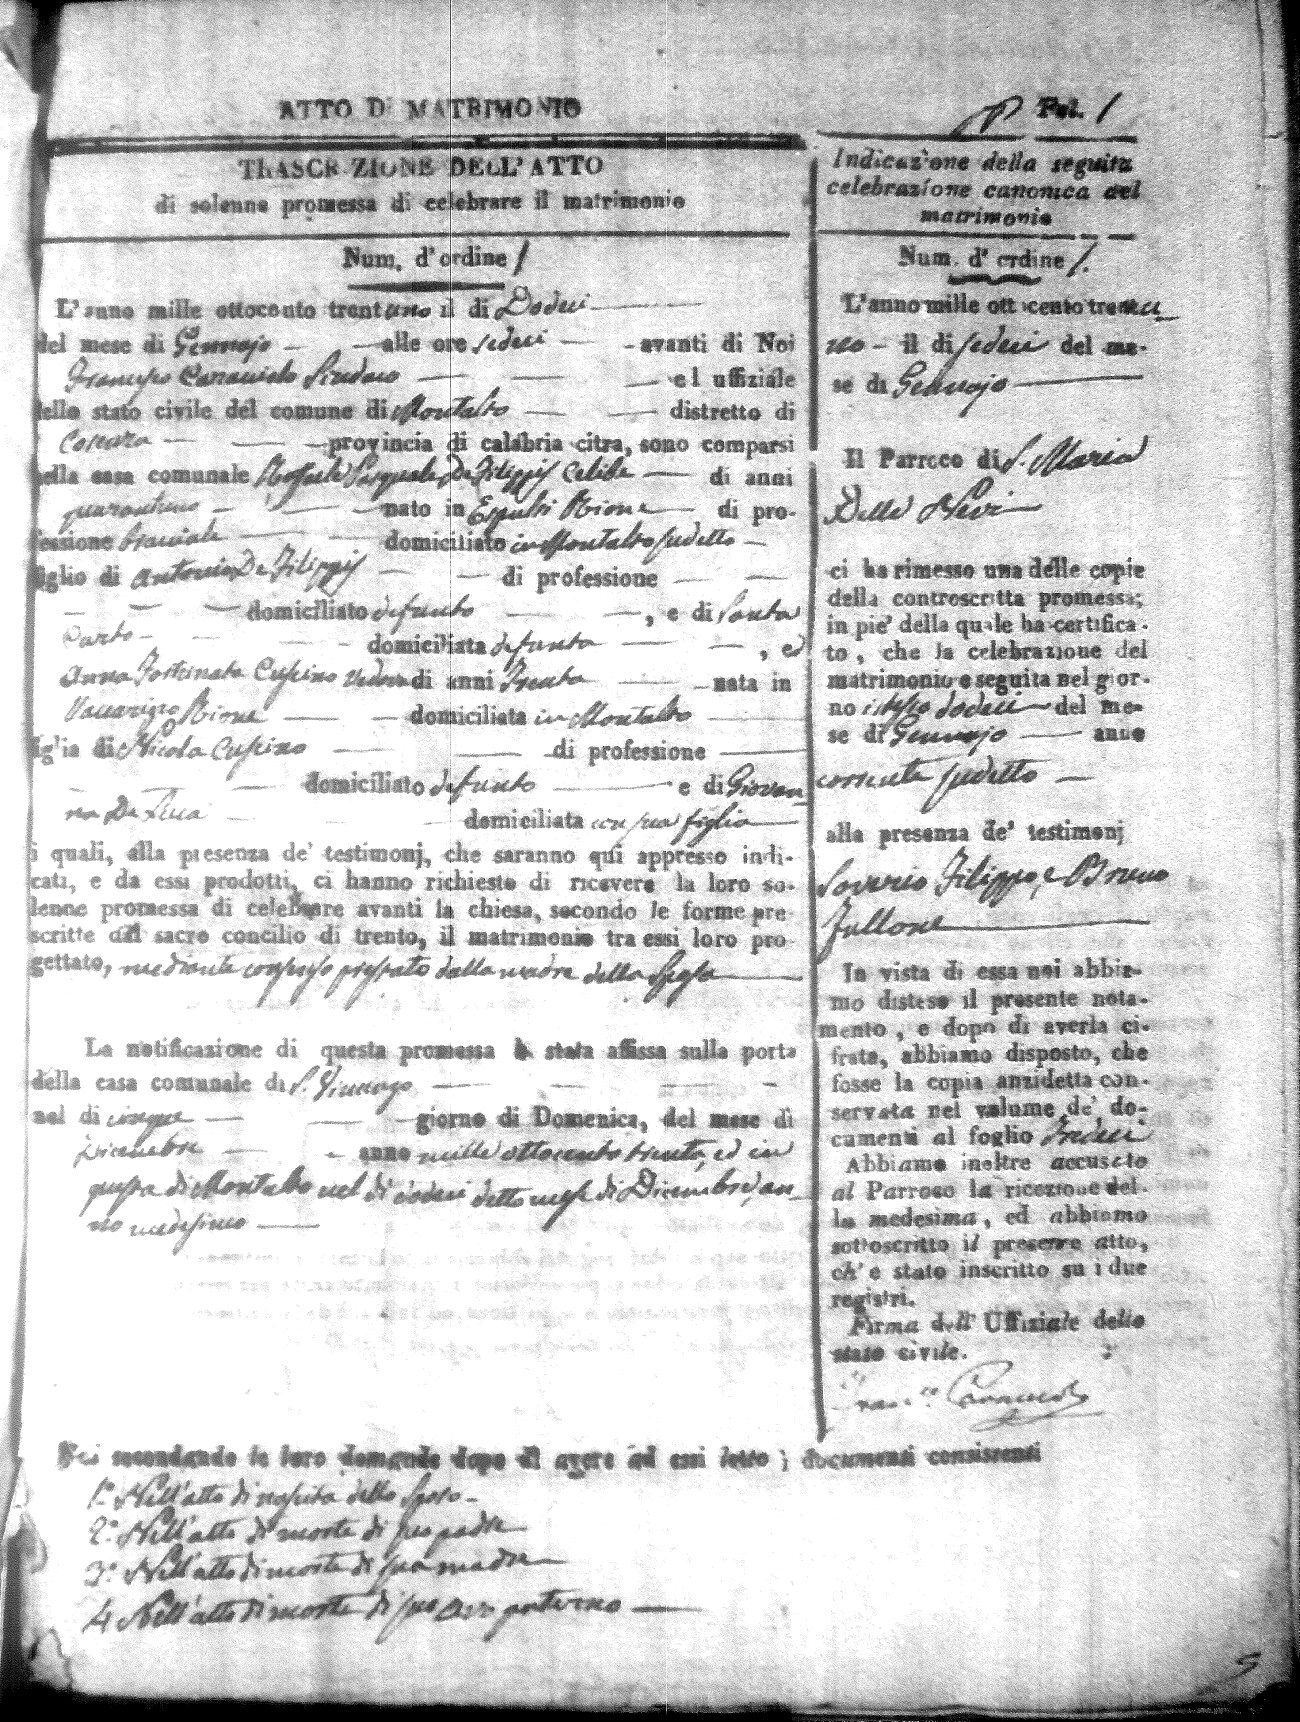 ATTO DI MATRIMONIO
TRASCRIZIONE DELL'ATTO
di solenne promessa di celebrare il matrimonio
Num. d'ordine 1
L'anno mille ottocento trentuno il dì Dodeci
del mese di Gennajo alle ore sedeci avanti di Noi
Francesco Caracciolo Sindaco ed uffiziale
dello stato civile del comune di Montalto distretto di
Cosenza provincia di calabria citra, sono comparsi
nella casa comunale Raffaele Pasquale De Filippis Celibe di anni
quarantuno nato in Espulsi Rione di pro-
fessione bracciale domiciliato in Montalto sudetto
figlio di Antonio De Filippis di professione
domiciliato defunto , e di Santa
Curto domiciliata defunta , ed
Anna Fortunata Cupino Vedova di anni Trenta nata in
Vaccarizzo Rione domiciliata in Montalto
figlia di Nicola Cupino di professione
domiciliato defunto e di Giovan
na De Luca domiciliata con sua figlia
i quali, alla presenza de' testimonj, che saranno qui appresso indi-
cati, e da essi prodotti, ci hanno richiesto di ricevere la loro so-
lenne promessa di celebrare avanti la chiesa, secondo le forme pre
scritte dal sacro concilio di trento, il matrimonio tra essi loro pro
gettato, mediante consenso prestato dalla madre della Sposa
La notificazione di questa promessa è stata affissa sulla porta
della casa comunale di S. Vincenzo
nel dì cinque giorno di Domenica, del mese di
Dicembre anno mille ottocento trenta, ed in
questa di Montalto nel dì dodeci detto mese di Dicembre, an_
no medesimo
Fol. 1
Indicazione della seguita
celebrazione canonica del
matrimonio
Num. d'ordine 1.
L'anno mille ottocento trentu_
no il dì sedeci del me-
se di Gennajo
Il Parroco di S. Maria
Della Neve
ci ha rimesso una delle copie
della controscritta promessa;
in pie' della quale ha certifica-
to, che la celebrazione del
matrimonio e seguita nel gior-
no istesso dodeci del me-
se di Gennajo anno
corrente sudetto
alla presenza de' testimonj
Saverio Filippo, e Bruno
Fullone
In vista di essa noi abbia-
mo disteso il presente nota-
mento, e dopo di averla ci-
frata, abbiamo disposto, che
fosse la copia anzidetta con-
servata nel volume de' do-
cumenti al foglio Tredeci
Abbiamo inoltre accusato
al Parroco la ricezione del-
la medesima, ed abbiamo
sottoscritto il presente atto,
ch'e stato inscritto su i due
registri.
Firma dell' Uffiziale dello
stato civile.
Fran.co Caracciolo
Noi secondando le loro domande dopo di avere ad essi letto i documenti consistenti
1.° Nell'atto di nascita dello Sposo
2.° Nell'atto di morte di suo padre
3.° Nell'atto di morte di sua madre
4 Nell'atto di morte di suo avo paterno
5